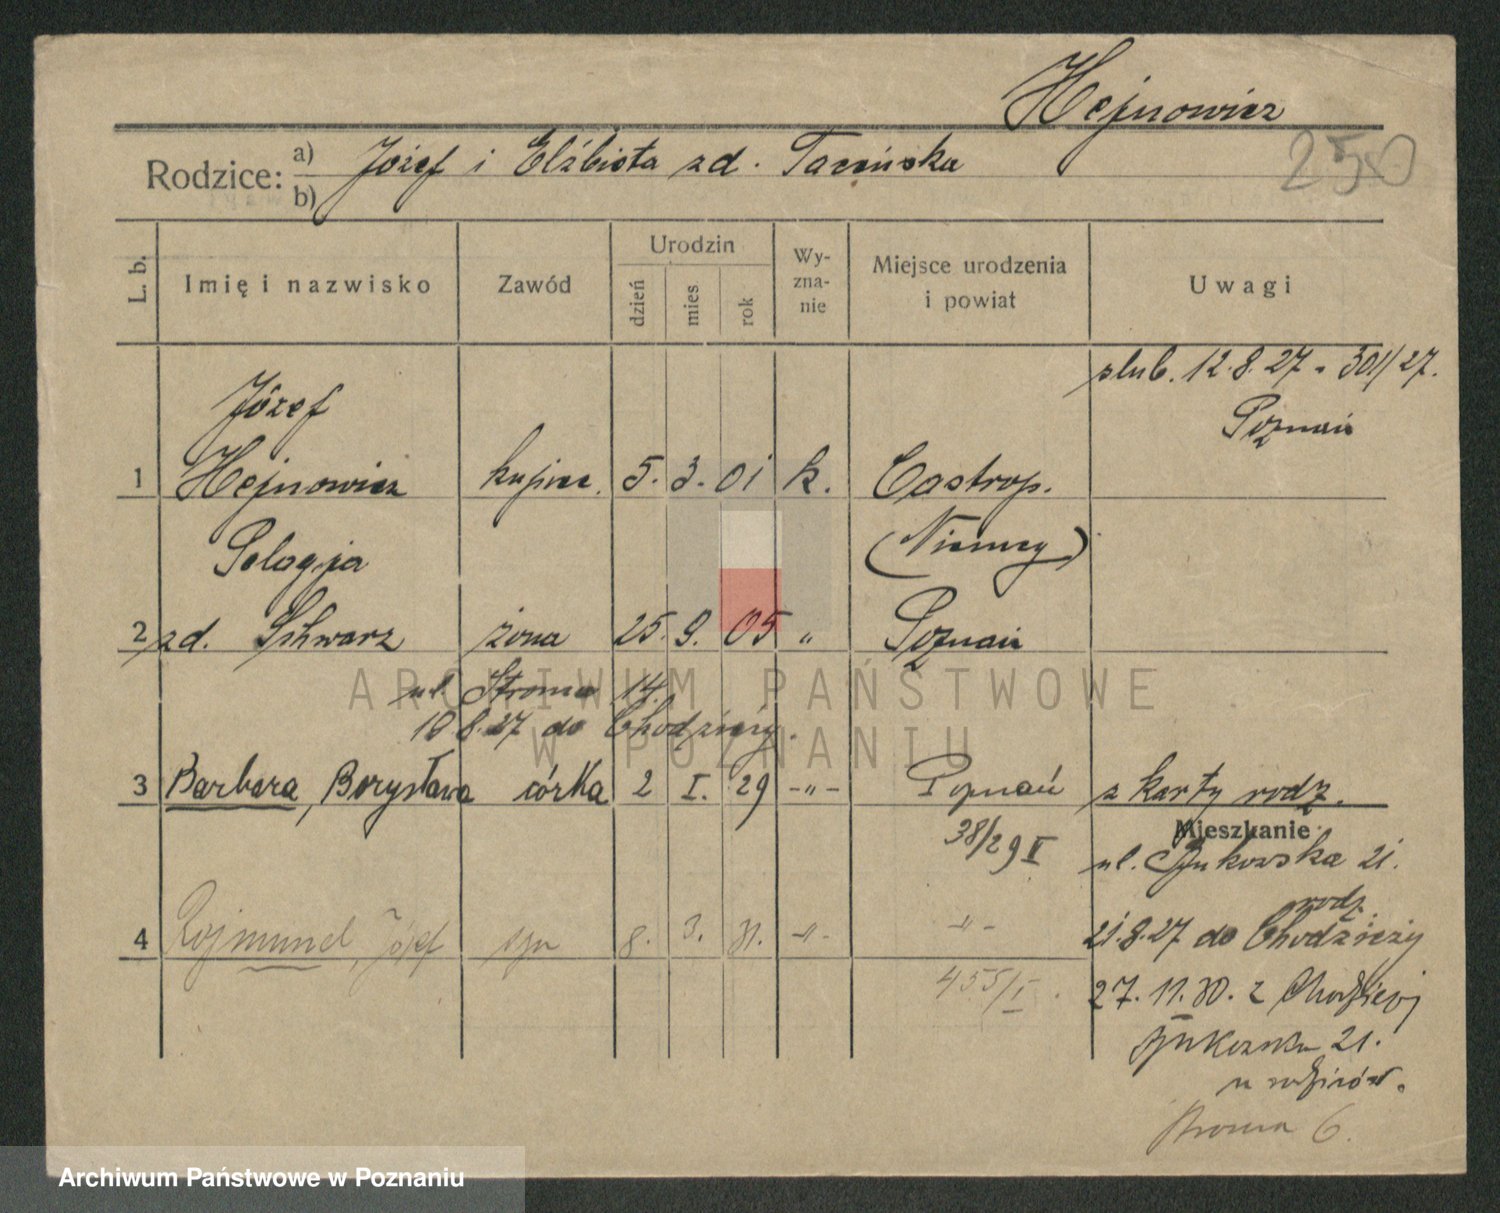 Hejnowicz
250
Rodzice: a) Józef i Elżbieta zd.
b)
L. b. Imię i nazwisko Zawód Urodzin dzień mies rok Wyznanie Miejsce urodzenia i powiat Uwagi
ślub. 12.8.27 - 301/27.
Poznań
Józef
1 Hejnowicz kupiec. 5. 3. 01 k. Castrop.
(Niemcy)
Pelagja
2 zd. Schwarz żona 25. 9. 05 " Poznań
ul. Stroma 14.
19 8.27 do Chodzieży.
3 Barbara, Borysława córka 2 I. 29 -"- Poznań z karty rodz.
38/29 I
Mieszkanie
ul. Bukowska 21.
rodz.
21.8.27 do Chodzieży
4 Rajmund, Józef syn 8. 3. 31. -"- -"-
455/I.
27. 11. 30. z Chodzieży
Bukowska 21.
u rodziców.
6.
ARCHIWUM PAŃSTWOWE
W POZNANIU
Archiwum Państwowe w Poznaniu